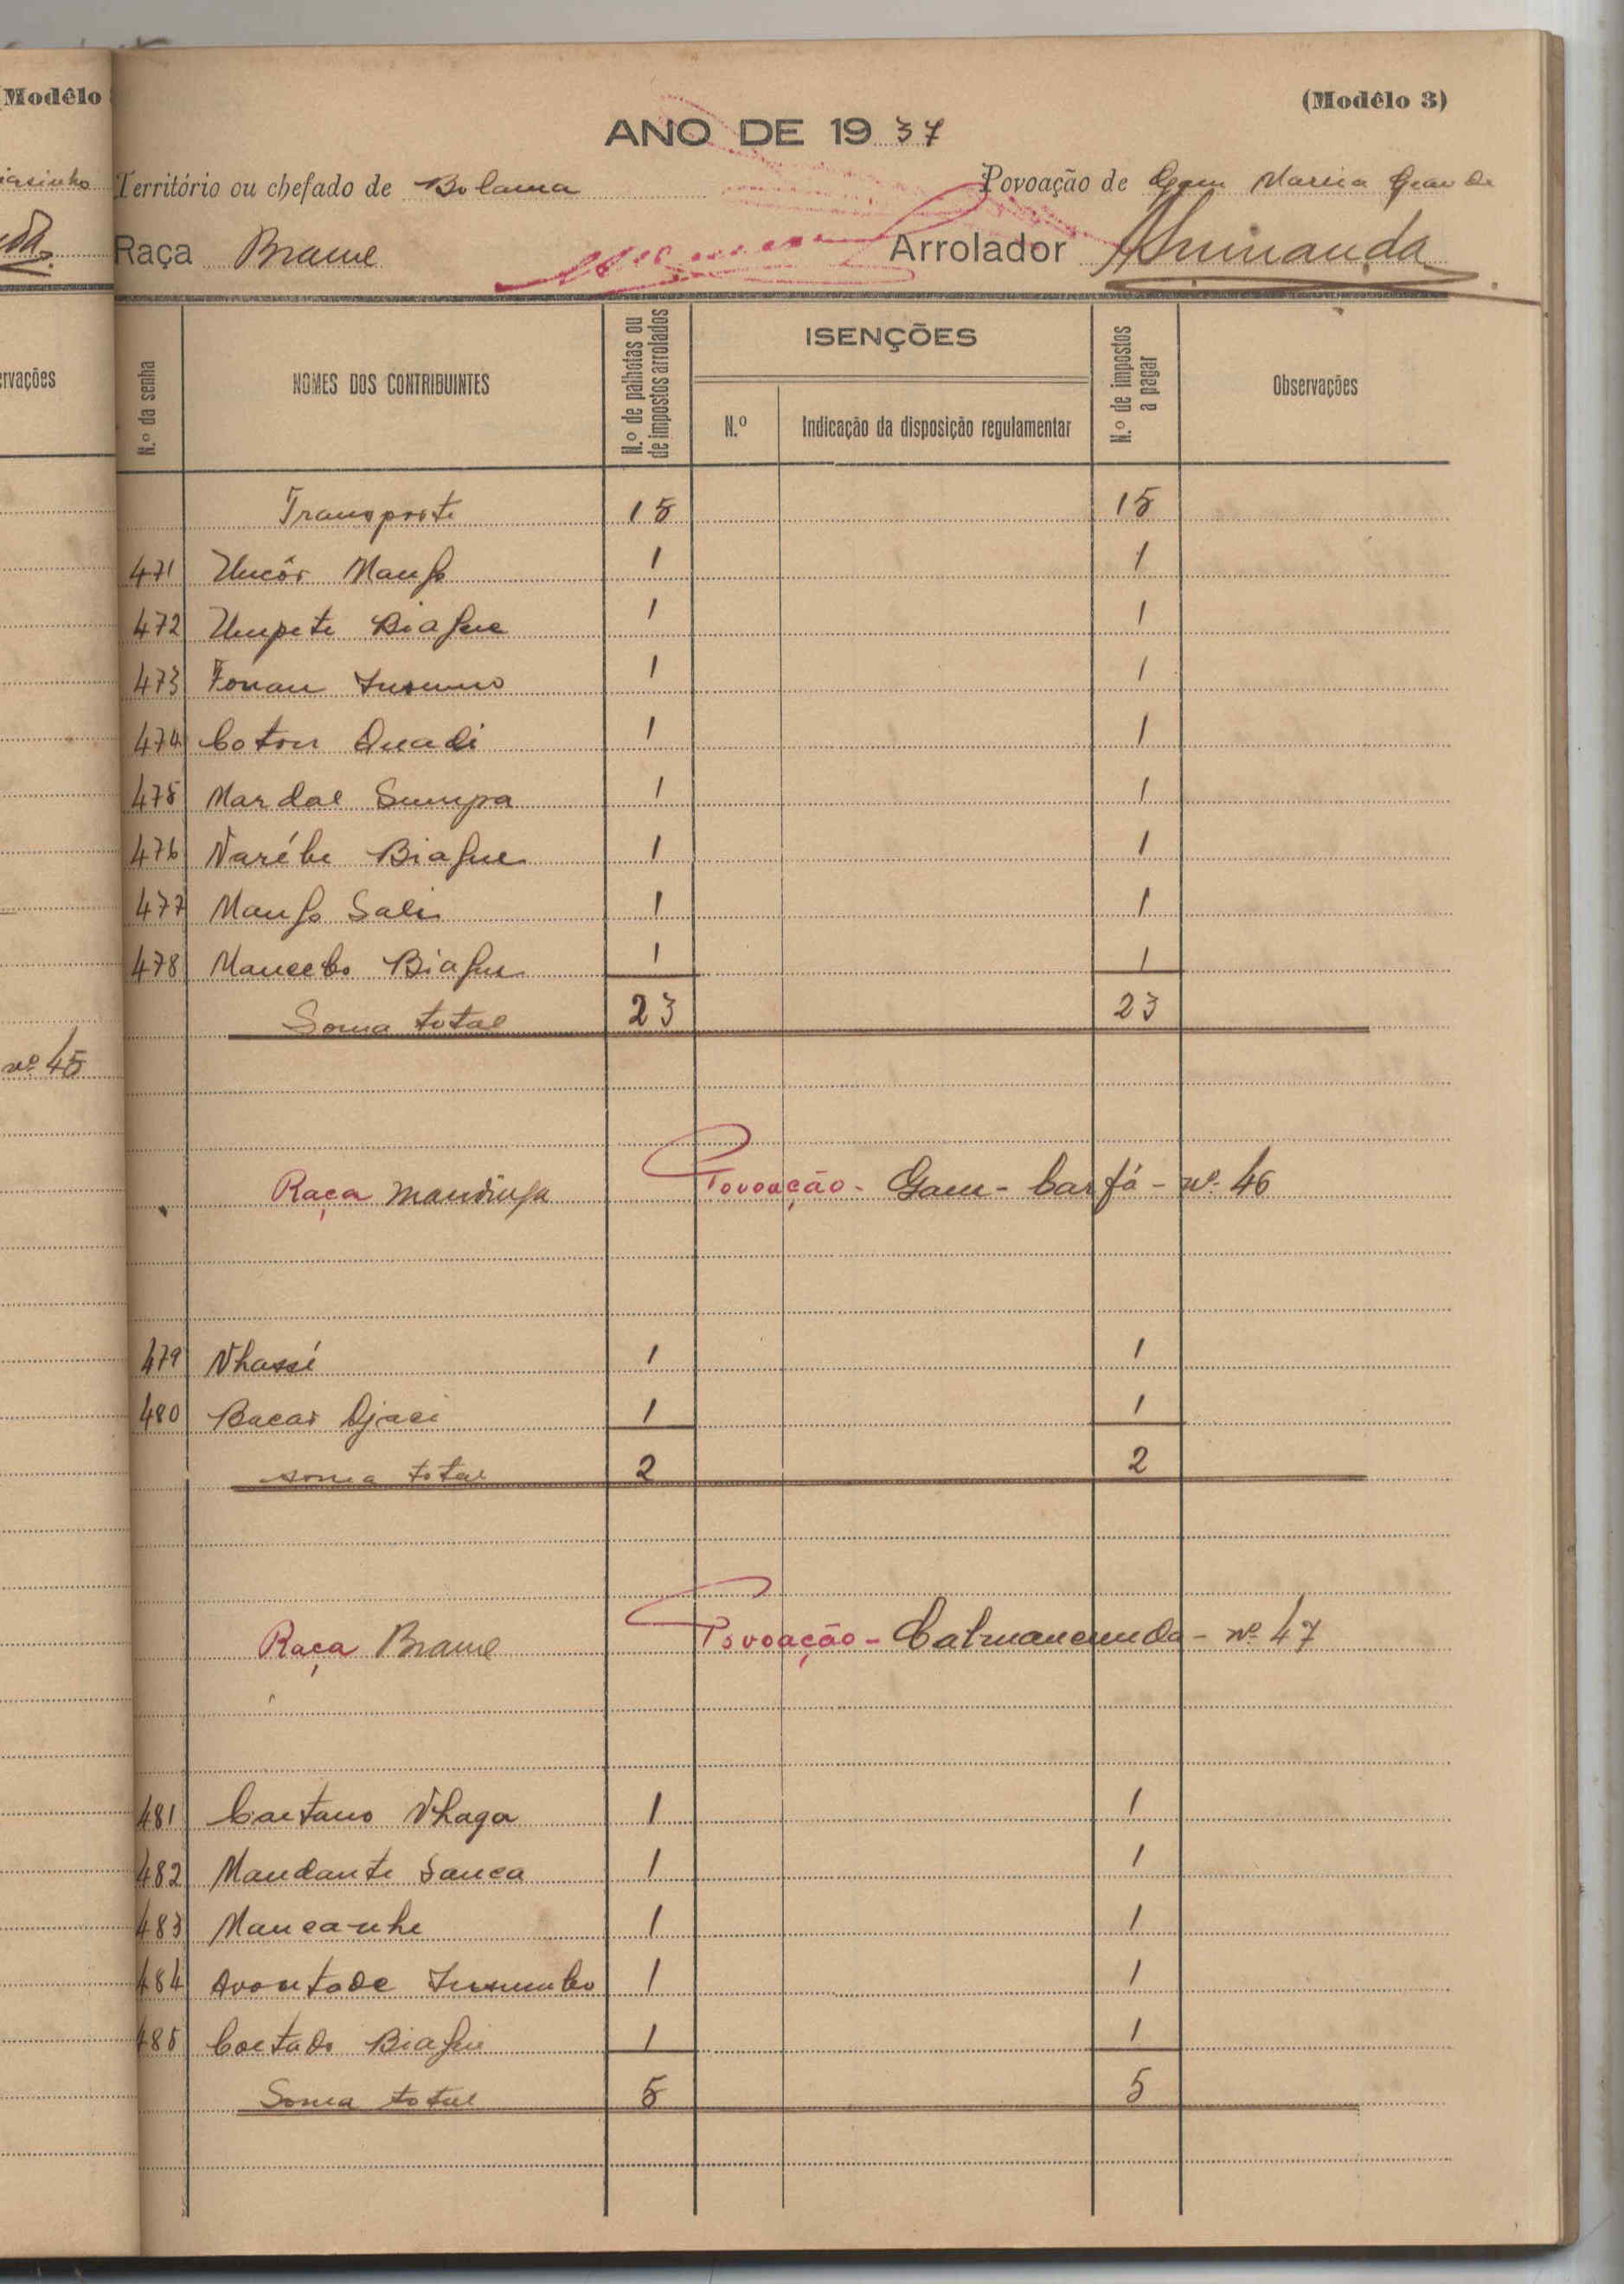 (Modêlo
(Modêlo 3)
ANO DE 1937
Território ou chefado de Bolama
Povoação de Gam Maria Grande
Raça Brame
Arrolador
rvações
N.º da senha
NOMES DOS CONTRIBUINTES
N.º de palhotas ou de impostos arrolados
ISENÇÕES
N.º
Indicação da disposição regulamentar
N.º de impostos a pagar
Observações
Transporte 15 15
471 1 1
472 Biague 1 1
473 1 1
474 1 1
475 Mardal Sumpa 1 1
476 Biague 1 1
477 Manga Sali 1 1
478 Mancebo Biague 1 1
Soma total 23 23
nº 45
Raça Mandinga Povoação - Gam - Carfá - nº 46
479 Nhassé 1 1
480 Bacar Djaci 1 1
soma total 2 2
Raça Brame Povoação - Calmancunda - nº 47
481 Caetano Nhaga 1 1
482 Mandante Sanca 1 1
483 Mancanhe 1 1
484 Avontade 1 1
485 Biague 1 1
Soma total 5 5